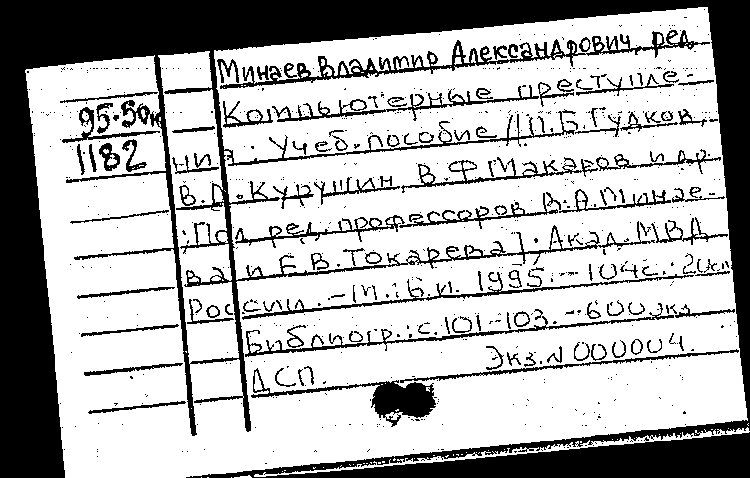 Минаев, Владимир Александрович, ред.
95-50к Компьютерные преступле-
1182 ния : Учеб. пособие / [П.Б. Гудков,
В.Д. Курушин, В.Ф. Макаров и др.
; Под ред. профессоров В.А. Минае-
ва и Е.В. Токарева ] ; Акад. МВД
России. – М. : Б.и. 1995. – 104с. ; 20см
Библиогр.: с. 101-103. – 600 экз
ДСП. Экз. N 000004.